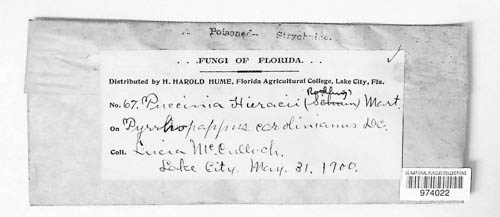 Poisoned-- Strychnine.
...FUNGI OF FLORIDA...
Distributed by H. HAROLD HUME, Florida Agricultural College, Lake City, Fla.
No. 67. Puccinia Hieracii (Schum) Mart.
On Pyrrhopappus carolinianus DC.
Coll. Lucia McCulloch.
Lake City. May. 31. 1900.
US NATIONAL FUNGUS COLLECTIONS
974022